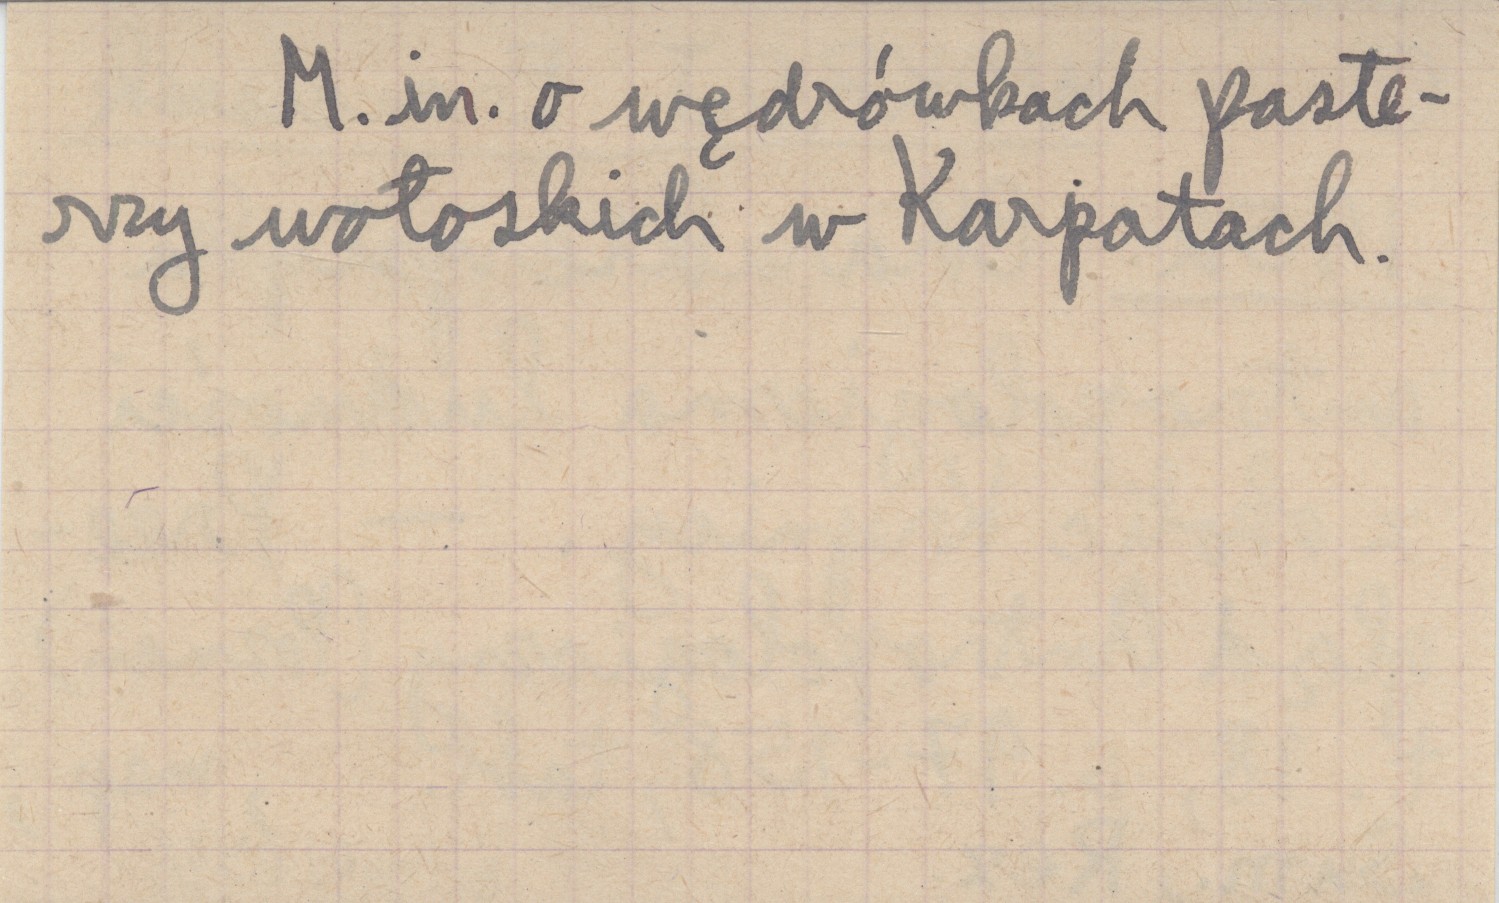 M. in. o wędrówkach paste-
rzy wołoskich w Karpatach.